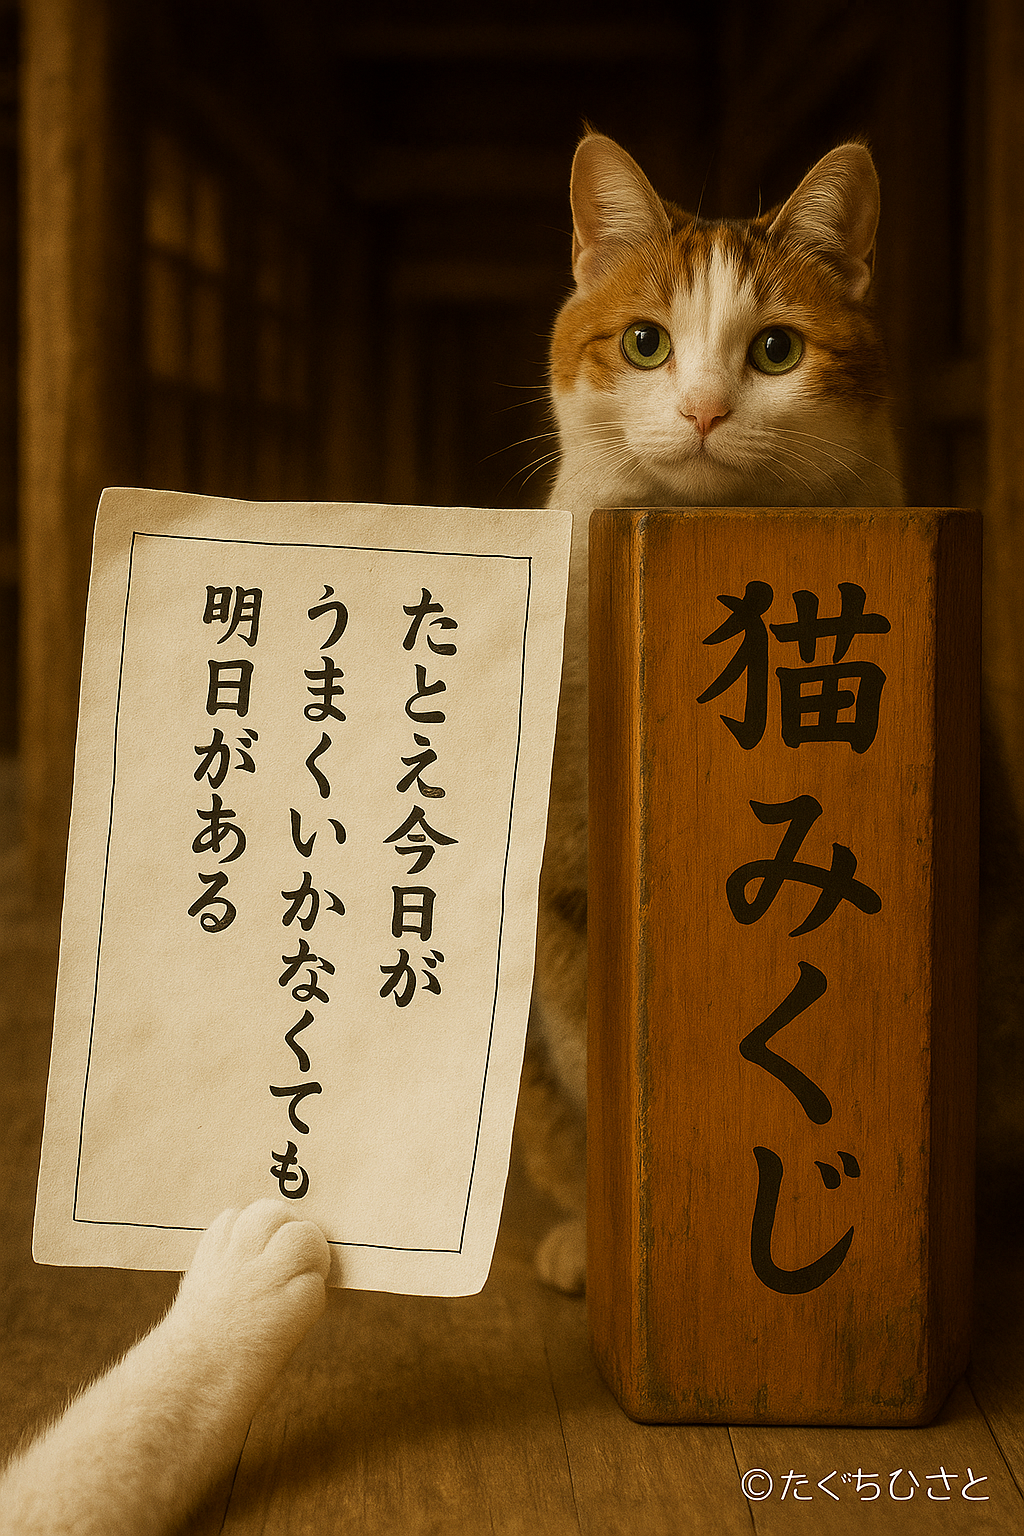 たとえ今日が
うまくいかなくても
明日がある
猫みくじ
©たぐちひさと